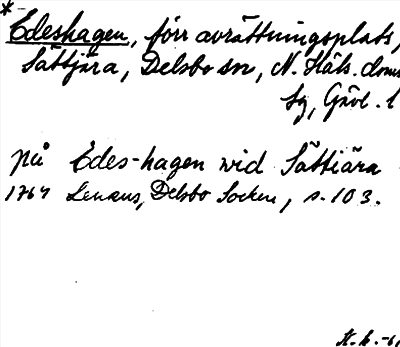 *
Edeshagen, förr avrättningsplats,
Sättjära, Delsbo sn, N. Häls. doms
Sg, Gävl. l
på Edes-hagen wid Sättiära
1764 Lenæus, Delsbo Socken, s. 103.